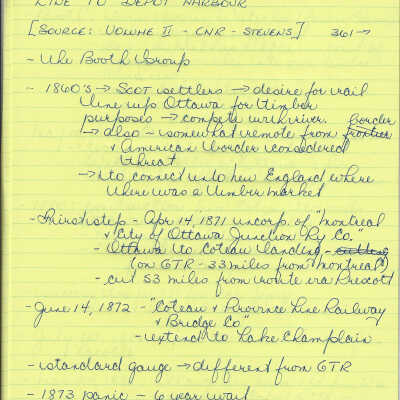 LINE TO DEPOT HARBOUR
[SOURCE: VOLUME II - CNR - STEVENS] 361→
- The Booth Group
- 1860's → Scot settlers → desire for rail
line up Ottawa for timber
purposes → compete with river.
→ also - somewhat remote from frontier border
& American border considered
threat
→ to connect into New England where
there was a timber market
- First step - Apr 14, 1871 incorp. of "Montreal
& City of Ottawa Junction Ry Co."
- Ottawa to Coteau Landing -
(on GTR - 33 miles from Montreal)
- cut 53 miles from route via Prescott
- June 14, 1872 - "Coteau & Province Line Railway
& Bridge Co"
- extend to Lake Champlain
- standard gauge → different from GTR
- 1873 panic - 6 year wait